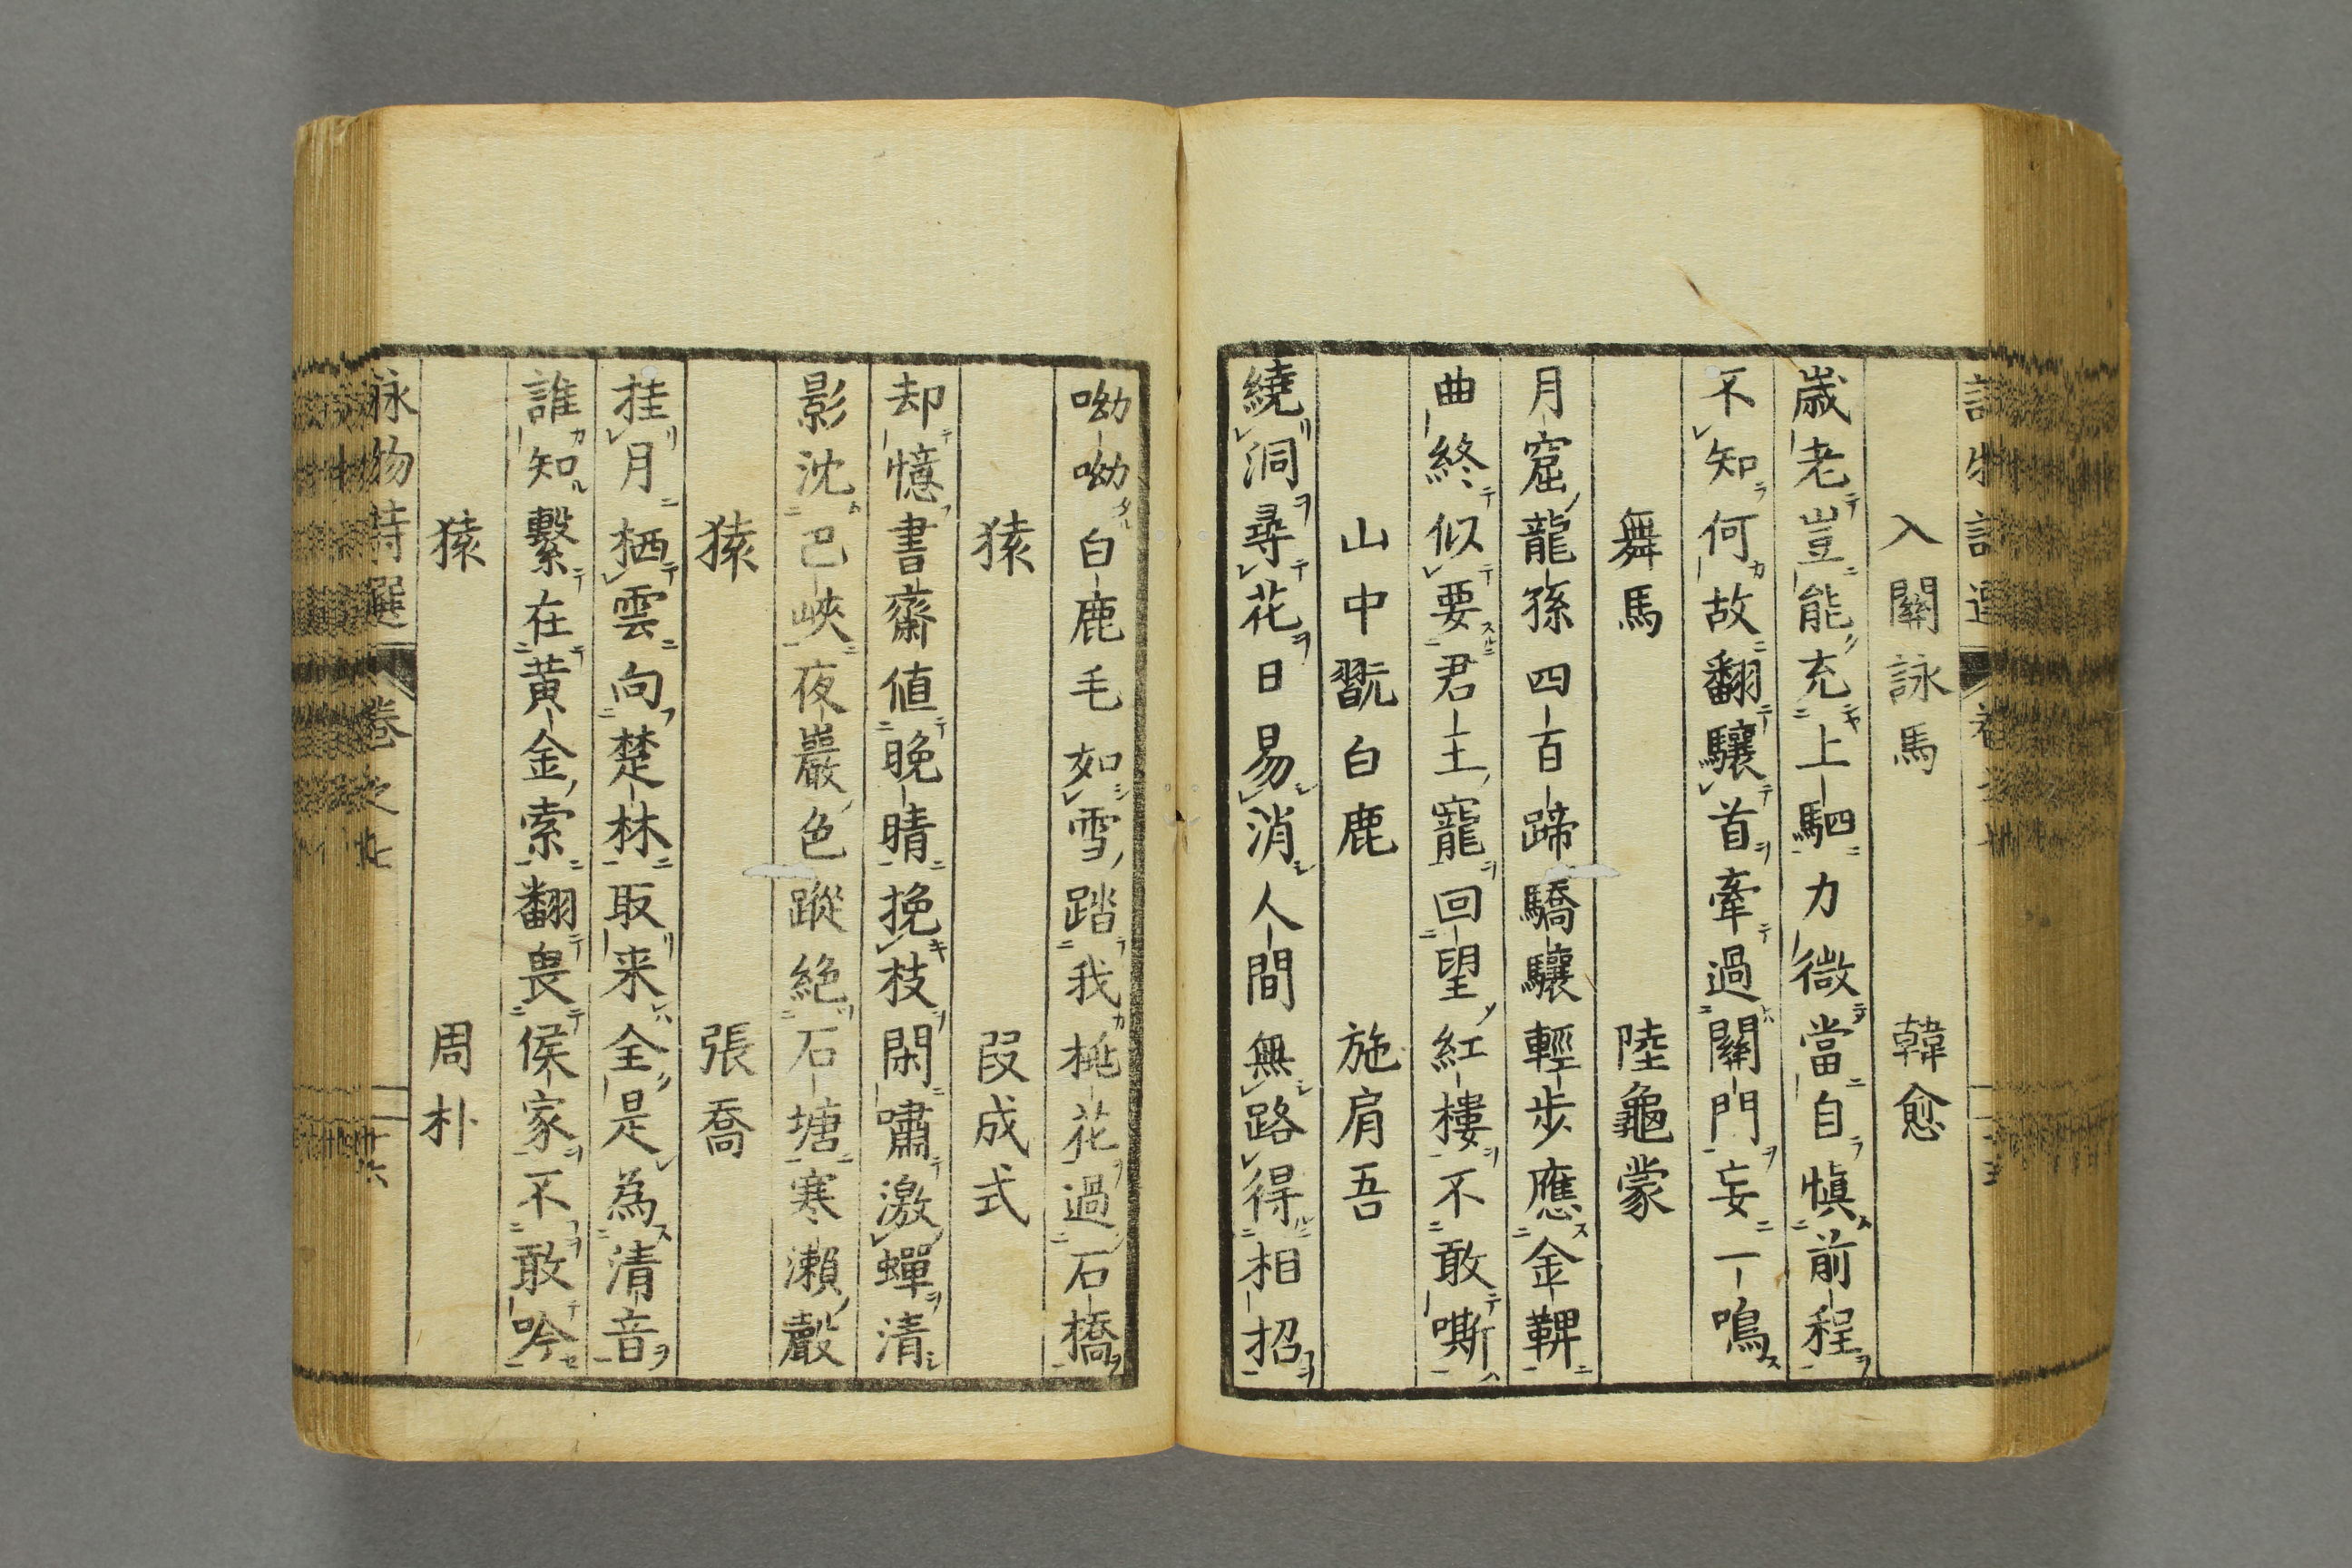 入關詠馬 韓愈
歳老豈能充上駟力微當自愼前程
不知何故翻驤首牽過關門妄一鳴
舞馬 陸龜蒙
月窟龍孫四百蹄驕驤輕步應金鞞
曲終似要君王寵回望紅樓不敢嘶
山中翫白鹿 施肩吾
繞洞尋花日易消人間無路得相招
呦呦白鹿毛如雪踏我桃花過石橋
猿 段成式
却憶書齋値晚晴挽枝閑嘯激蟬清
影沈巴峽夜巖色蹤絶石塘寒瀨聲
猿 張喬
挂月栖雲向楚林取来全是為清音
誰知繫在黃金索翻畏侯家不敢吟
猿 周朴
詠物詩選 卷之七 十六